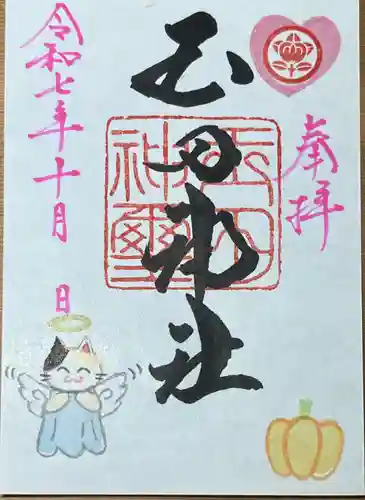 奉拝
玉田神社
玉田神璽
令和七年十月 日